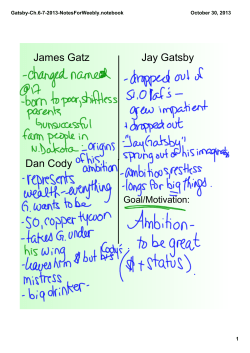 Gatsby-Ch.6-7-2013-NotesForWeebly.notebook
October 30, 2013
James Gatz
-changed name
@17
-born to poor, shiftless
parents
unsuccessful
farm people in
N. Dakota
-origins
of his
ambition
Dan Cody
-represents
wealth-everything
G. wants to be
-50, copper tycoon
-takes G. under
his wing
-leaves him $ but Cody's
mistress
-big drinker-
Jay Gatsby
-dropped out of
St. Olaf's-
grew impatient
+ dropped out
-"Jay Gatsby"
sprung out of his
-ambitious, restless
-longs for big things.
Goal/Motivation:
Ambition-
to be great
($ + status)
1